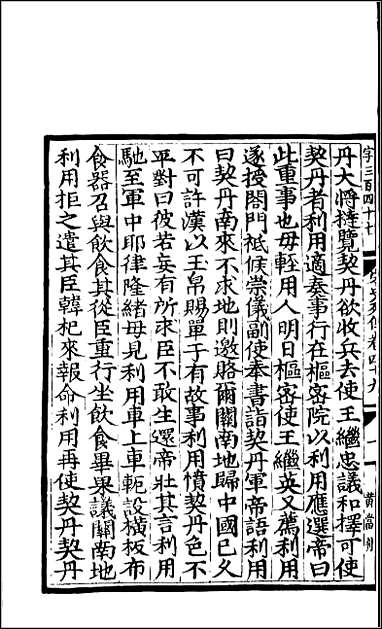 字三百四十七
丹大將撻覽契丹欲收兵去使王繼忠議和擇可使
契丹者利用適奏事行在樞密院以利用應選帝曰
此重事也毋輕用人明日樞密使王繼英又薦利用
遂授閤門祗候崇儀副使奉書詣契丹軍帝語利用
曰契丹南來不求地則邀賂爾關南地歸中國已久
不可許漢以玉帛賜單于有故事利用憤契丹色不
平對曰彼若妄有所求臣不敢生還帝壯其言利用
馳至軍中耶律隆緒母見利用車上車軛設橫板布
食器召與飲食其從臣重行坐飲食畢果議關南地
利用拒之遣其臣韓杞來報命利用再使契丹契丹